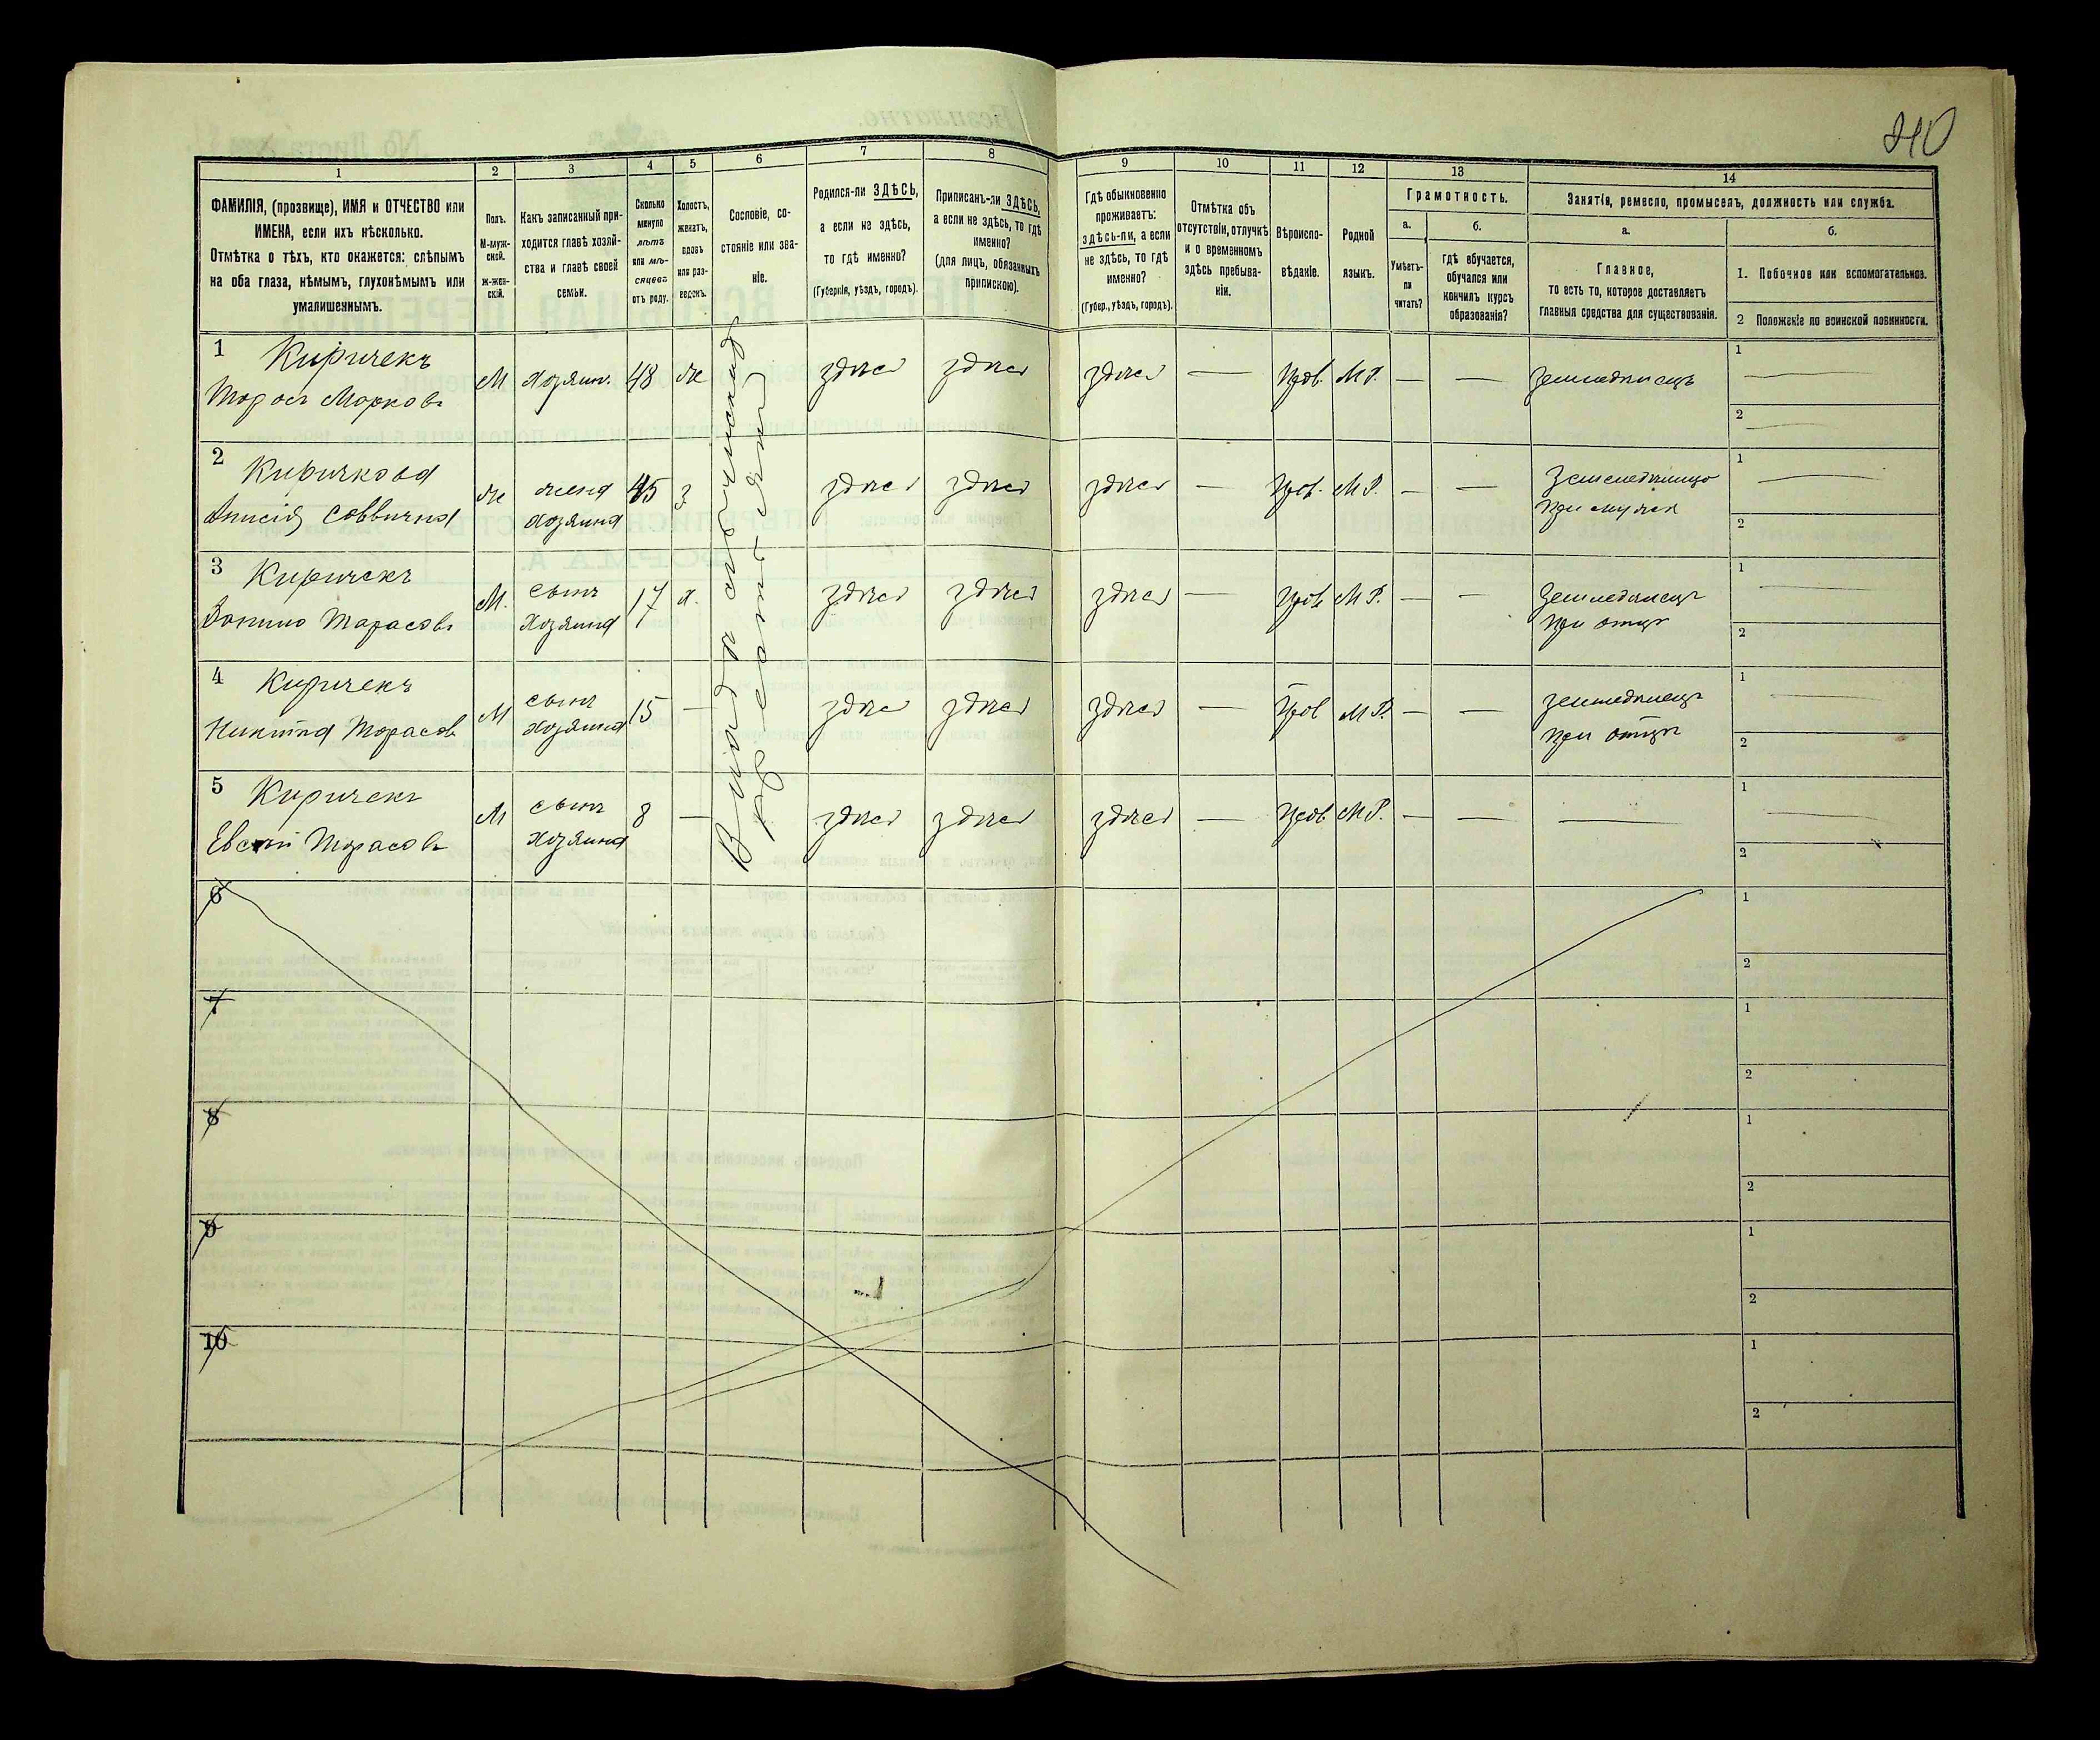 210
1
2
3
4
5
6
7
8
9
10
11
12
13
14
ФАМИЛІЯ, (прозвище), ИМЯ и ОТЧЕСТВО или
ИМЕНА, если ихъ нѣсколько.
Отмѣтка о тѣхъ, кто окажется: слѣпымъ
на оба глаза, нѣмымъ, глухонѣмымъ или
умалишеннымъ.
Полъ.
М-муж-
ской.
ж-жен-
скій.
Какъ записанный при-
ходится главѣ хозяй-
ства и главѣ своей
семьи.
Сколько
минуло
лѣтъ
или мѣ-
сяцевъ
отъ роду.
Холостъ,
женатъ,
вдовъ
или раз-
веденъ.
Сословіе, со-
стояніе или зва-
ніе.
Родился-ли ЗДѢСЬ,
а если не здѣсь,
то гдѣ именно?
(Губернія, уѣздъ, городъ).
Приписанъ-ли ЗДѢСЬ,
а если не здѣсь, то гдѣ
именно?
(для лицъ, обязанныхъ
припискою).
Гдѣ обыкновенно
проживаетъ:
здѣсь-ли, а если
не здѣсь, то гдѣ
именно?
(Губер., уѣздъ, городъ).
Отмѣтка объ
отсутствіи, отлучкѣ
и о временномъ
здѣсь пребыва-
ніи.
Вѣроиспо-
вѣданіе.
Родной
языкъ.
Грамотность.
а.
Умѣетъ-
ли
читать?
б.
гдѣ обучается,
обучался или
кончилъ курсъ
образованія?
Занятіе, ремесло, промыселъ, должность или служба.
а.
Главное,
то есть то, которое доставляетъ
главныя средства для существованія.
б.
1. Побочное или вспомогательное.
2 Положеніе по воинской повинности.
1 Киричекъ
Тарасъ Марковъ
М хозяин. 48 же здѣсь здѣсь здѣсь — Прав. М.Р. — — земледѣлецъ
1 —
2 —
2 Киричкова
Анисія Саввична
же жена
хозяина
45 з здѣсь здѣсь здѣсь — Прав. М.Р. — —
при мужѣ
1 —
2
3 Киричекъ
Тарасовъ
М. сынъ
хозяина
17 х. здѣсь здѣсь здѣсь — Прав. М.Р. — — земледѣлецъ
при отцѣ
1 —
2
4 Киричекъ
Никита Тарасов
М сынъ
хозяина
15 — здѣсь здѣсь здѣсь — Прав М.Р. — — земледѣлецъ
при отцѣ
1 —
2
5 Киричекъ
Тарасовъ
М сынъ
хозяина
8 — здѣсь здѣсь здѣсь — Прав. М.Р. — — —
1 —
2
6
1
2
7
1
2
8
1
2
9
1
2
10
1
2